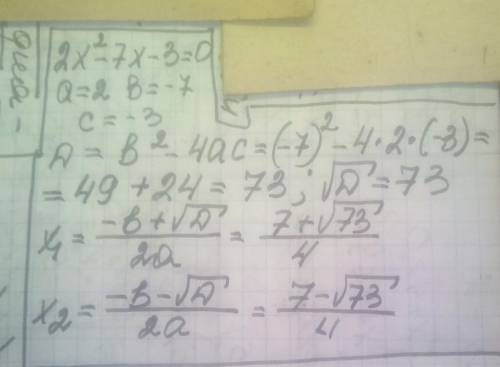 2x²-7x-3=0
a=2 b=-7
c=-3
D=b²-4ac=(-7)²-4·2·(-3)=
=49+24=73; √D=73
x₁=(-b+√D)/2a=(7+√73)/4
x₂=(-b-√D)/2a=(7-√73)/4